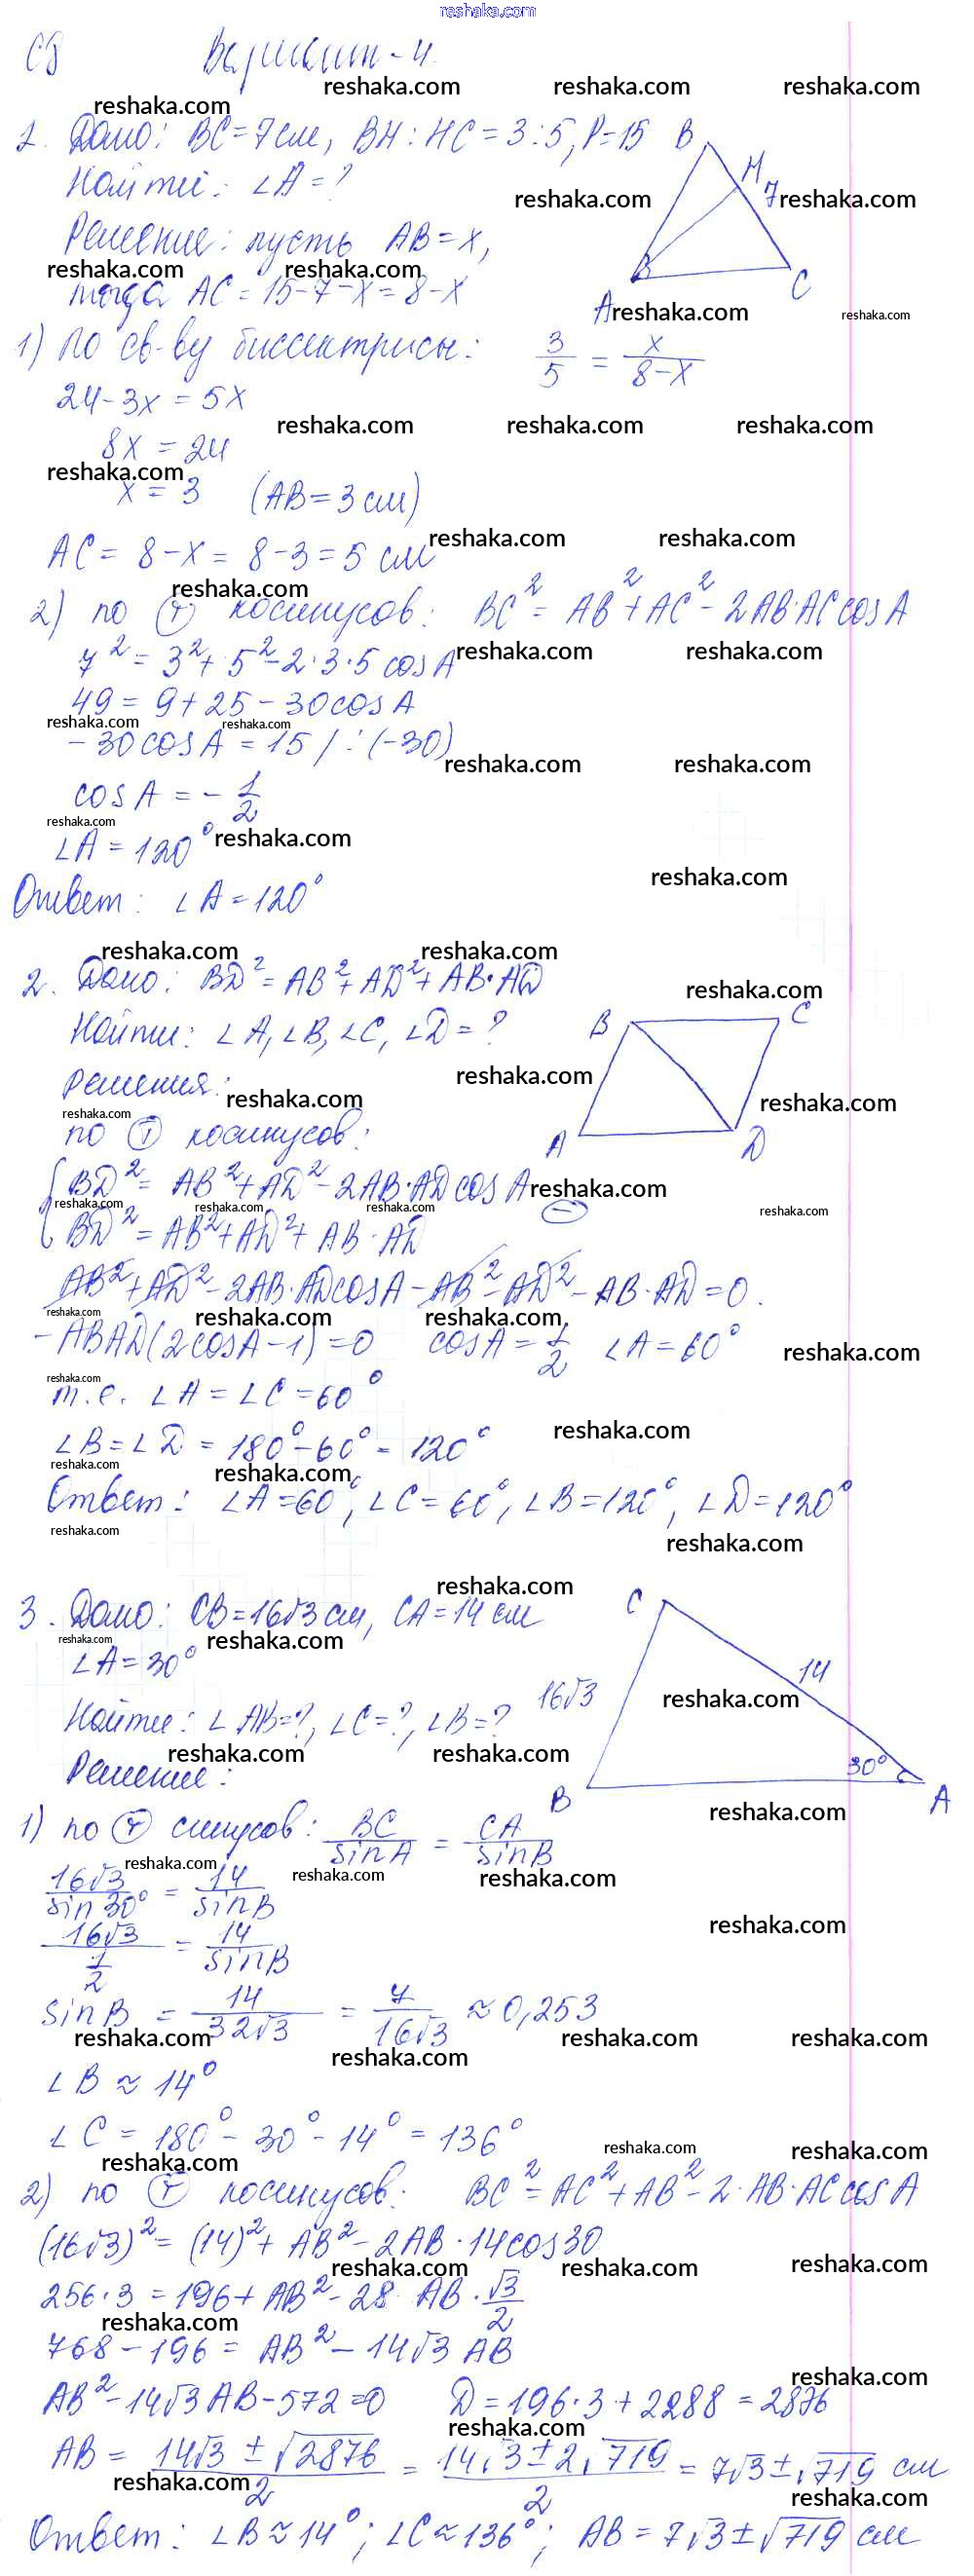 reshaka.com
С8 Вариант-4
1. Дано: BC=7см, BH:HC=3:5, P=15
Найти: ∠A=?
Решение: пусть AB=x,
тогда AC=15-7-x=8-x
B H 7 B A C
1) По св-ву биссектрисы: 3/5 = x/(8-x)
24-3x=5x
8x=24
x=3 (AB=3см)
AC=8-x=8-3=5 см
2) по Ⓣ косинусов: BC²=AB²+AC²-2AB·AC cosA
7²=3²+5²-2·3·5 cosA
49=9+25-30cosA
-30cosA=15 /:(-30)
cosA=-1/2
∠A=120°
Ответ: ∠A=120°
2. Дано: BD²=AB²+AD²+AB·AD
Найти: ∠A, ∠B, ∠C, ∠D=?
Решения:
B C A D
по Ⓣ косинусов:
{BD²=AB²+AD²-2AB·AD cosA
BD²=AB²+AD²+AB·AD (-)
AB²+AD²-2AB·ADcosA-AB²-AD²-AB·AD=0.
-ABAD(2cosA-1)=0 cosA=1/2 ∠A=60°
т.е. ∠A=∠C=60°
∠B=∠D=180°-60°=120°
Ответ: ∠A=60°, ∠C=60°, ∠B=120°, ∠D=120°
3. Дано: CB=16√3 см, CA=14 см
∠A=30°
Найти: ∠AB=?, ∠C=?, ∠B=?
Решение:
C 14 16√3 30° B A
1) по Ⓣ синусов: BC/sinA = CA/sinB
16√3/sin30° = 14/sinB
16√3/(1/2) = 14/sinB
sinB = 14/32√3 = 7/16√3 ≈ 0,253
∠B≈14°
∠C=180°-30°-14°=136°
2) по Ⓣ косинусов: BC²=AC²+AB²-2·AB·AC cosA
(16√3)²=(14)²+AB²-2AB·14cos30
256·3=196+AB²-28 AB·√3/2
768-196=AB²-14√3 AB
AB²-14√3AB-572=0 D=196·3+2288=2876
AB = (14√3±√2876)/2 = (14√3±2√719)/2 = 7√3±√719 см
Ответ: ∠B≈14°; ∠C≈136°; AB=7√3±√719 см